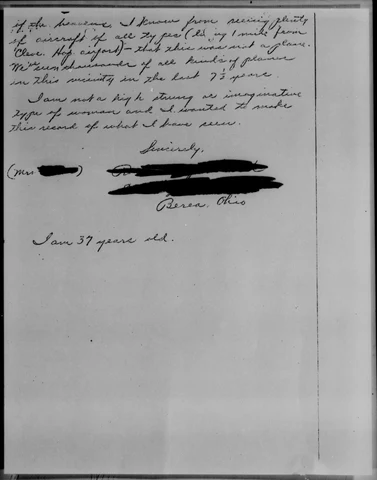 of the heavens. I know from seeing plenty
of aircraft of all types (live only 1 mile from
Cleve. Hop. airport) - that this was not a plane.
We've seen thousands of all kinds of planes
in this vicinity in the last 7½ years.
I am not a high strung or imaginative
type of woman and I wanted to make
this record of what I have seen.
Sincerely,
(Mrs. )
Berea, Ohio
I am 37 years old.